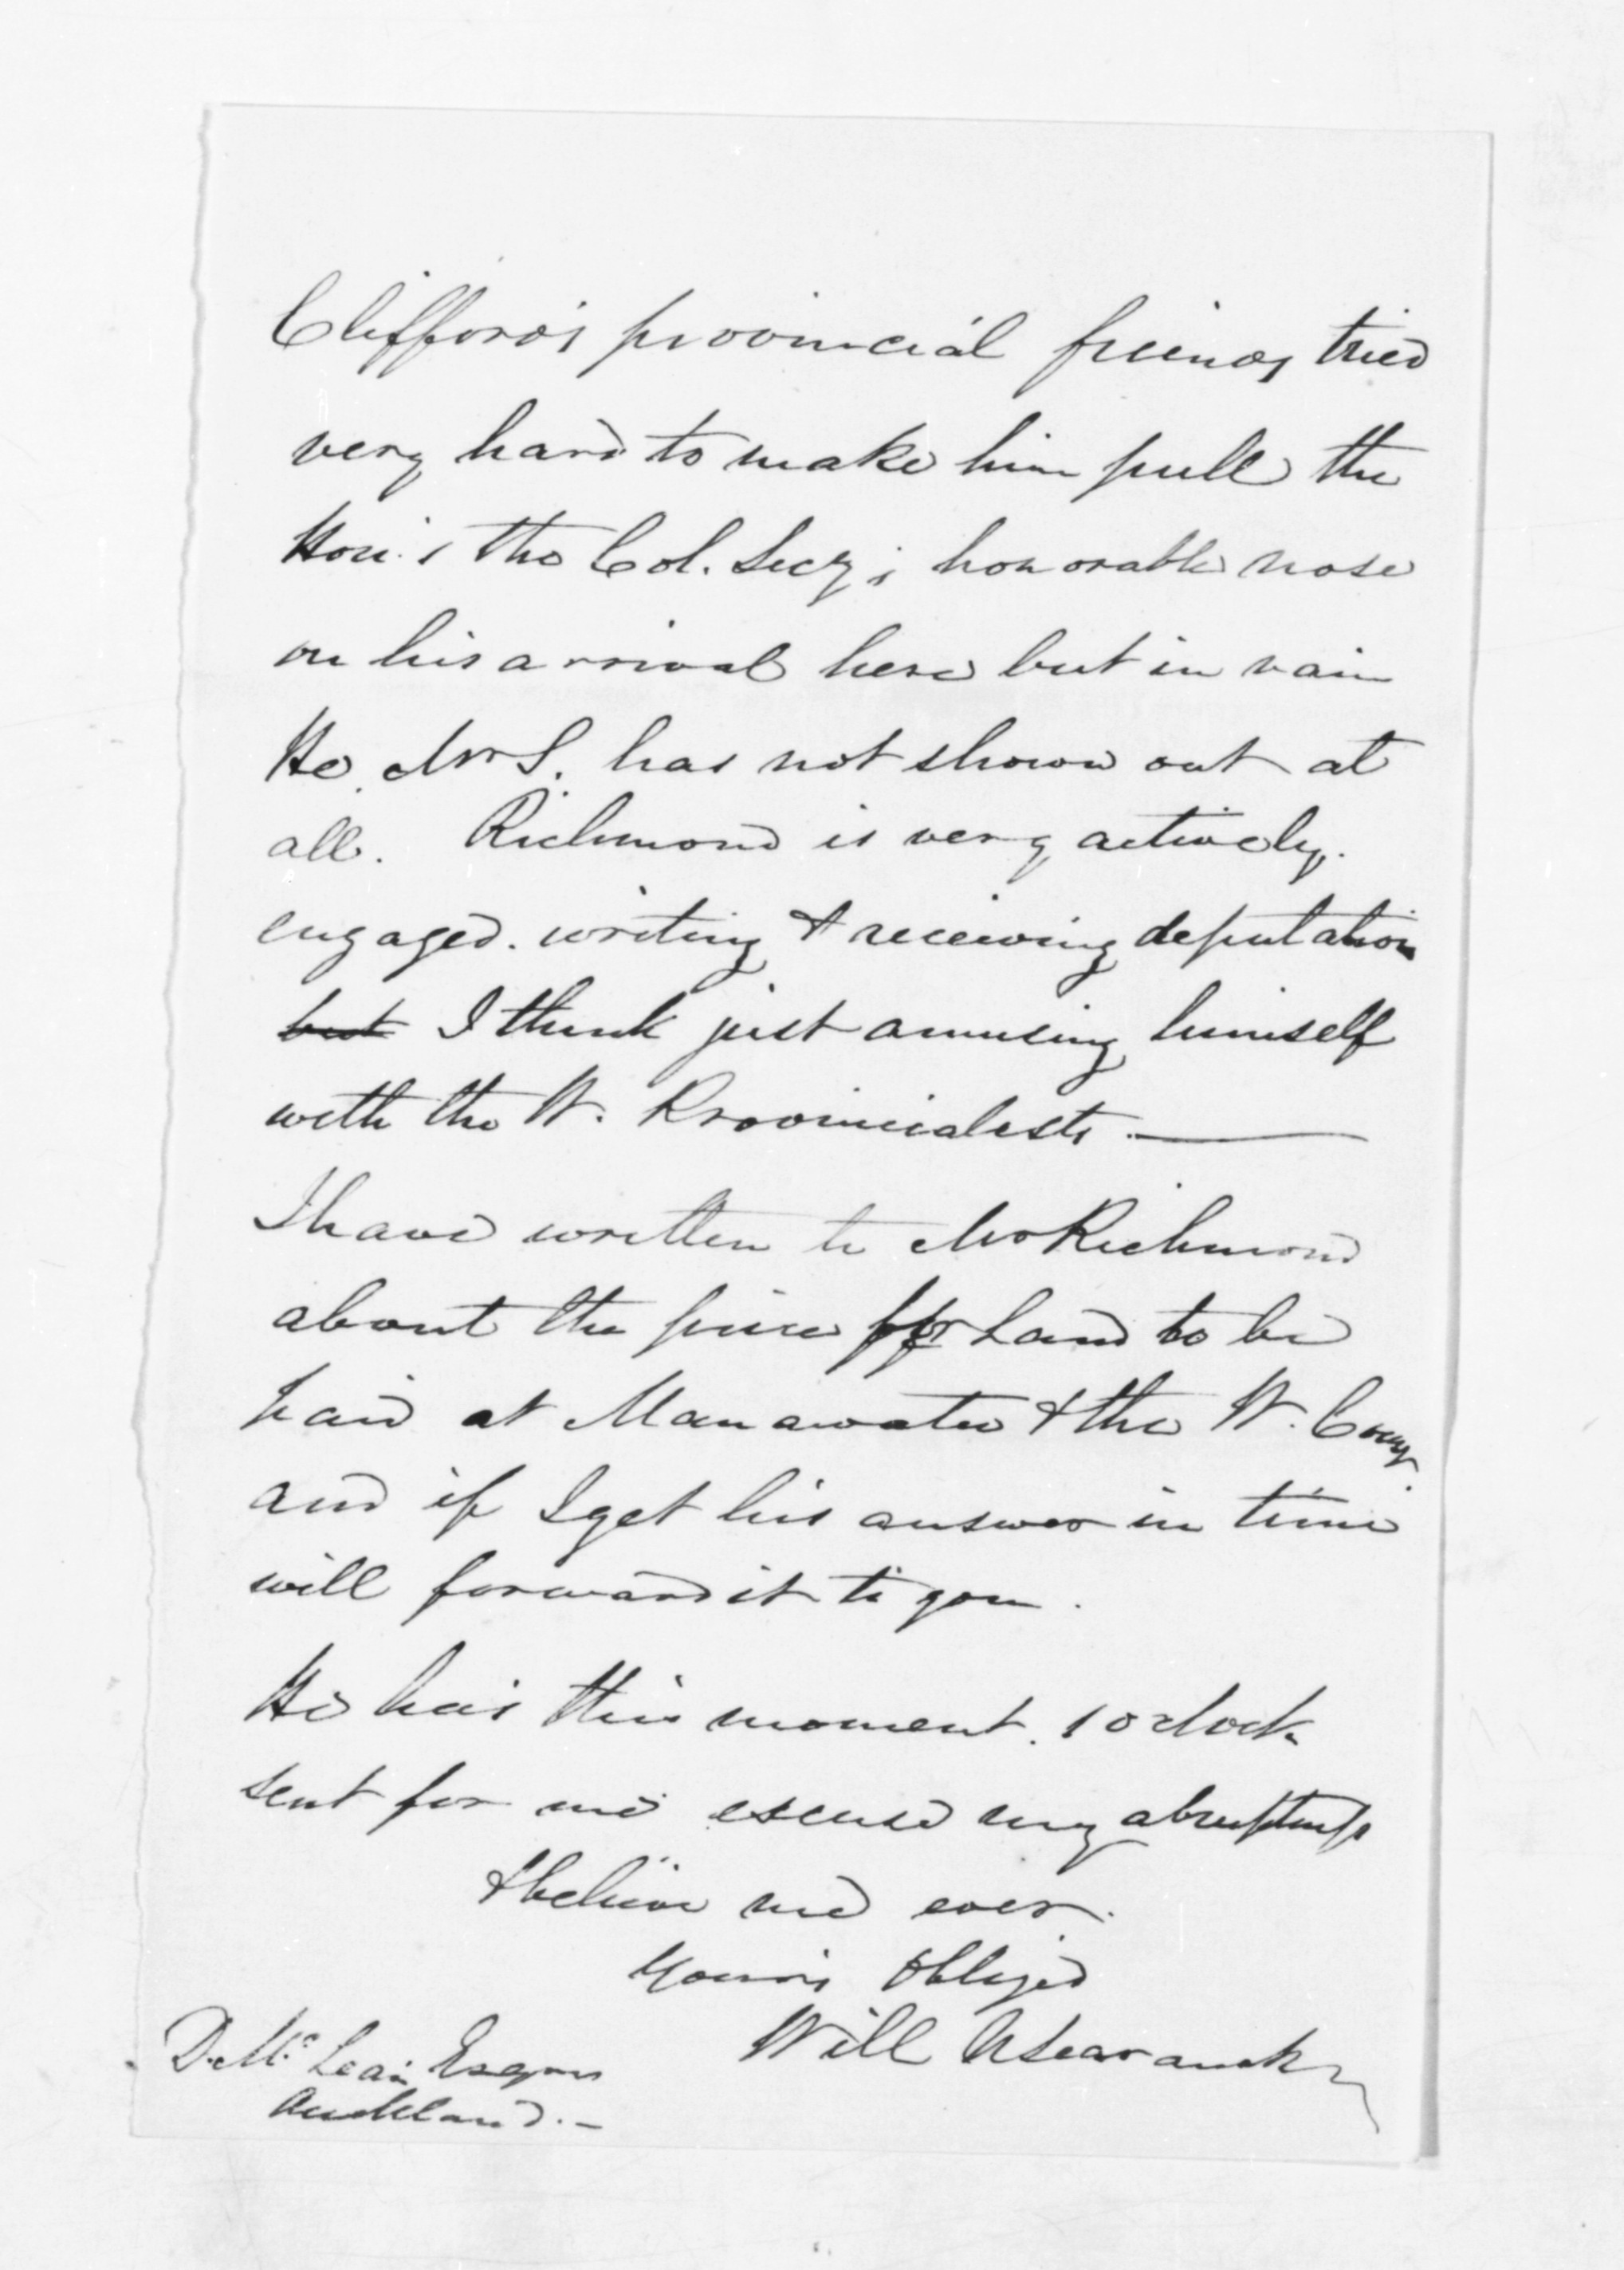 Clifford's provincial friends tried
very hard to make him pull the
Hon. the Col. Secy's honorable nose
on his arrival here but in vain
He. Mr S. has not shown out at
all. Richmond is very actively.
engaged. writing & receiving deputation
but I think just amusing himself
with the W. Provincialists. —
I have written to Mr Richmond
about the price for Land to be
had at Manawatu & the W. Coy.
and if I get his answer in time
will forward it to you.
He has this moment. 1 oclock
sent for me excuse my abruptness
& believe me ever.
Yours Obliged
Will
D. McLean Esqre
Auckland. —